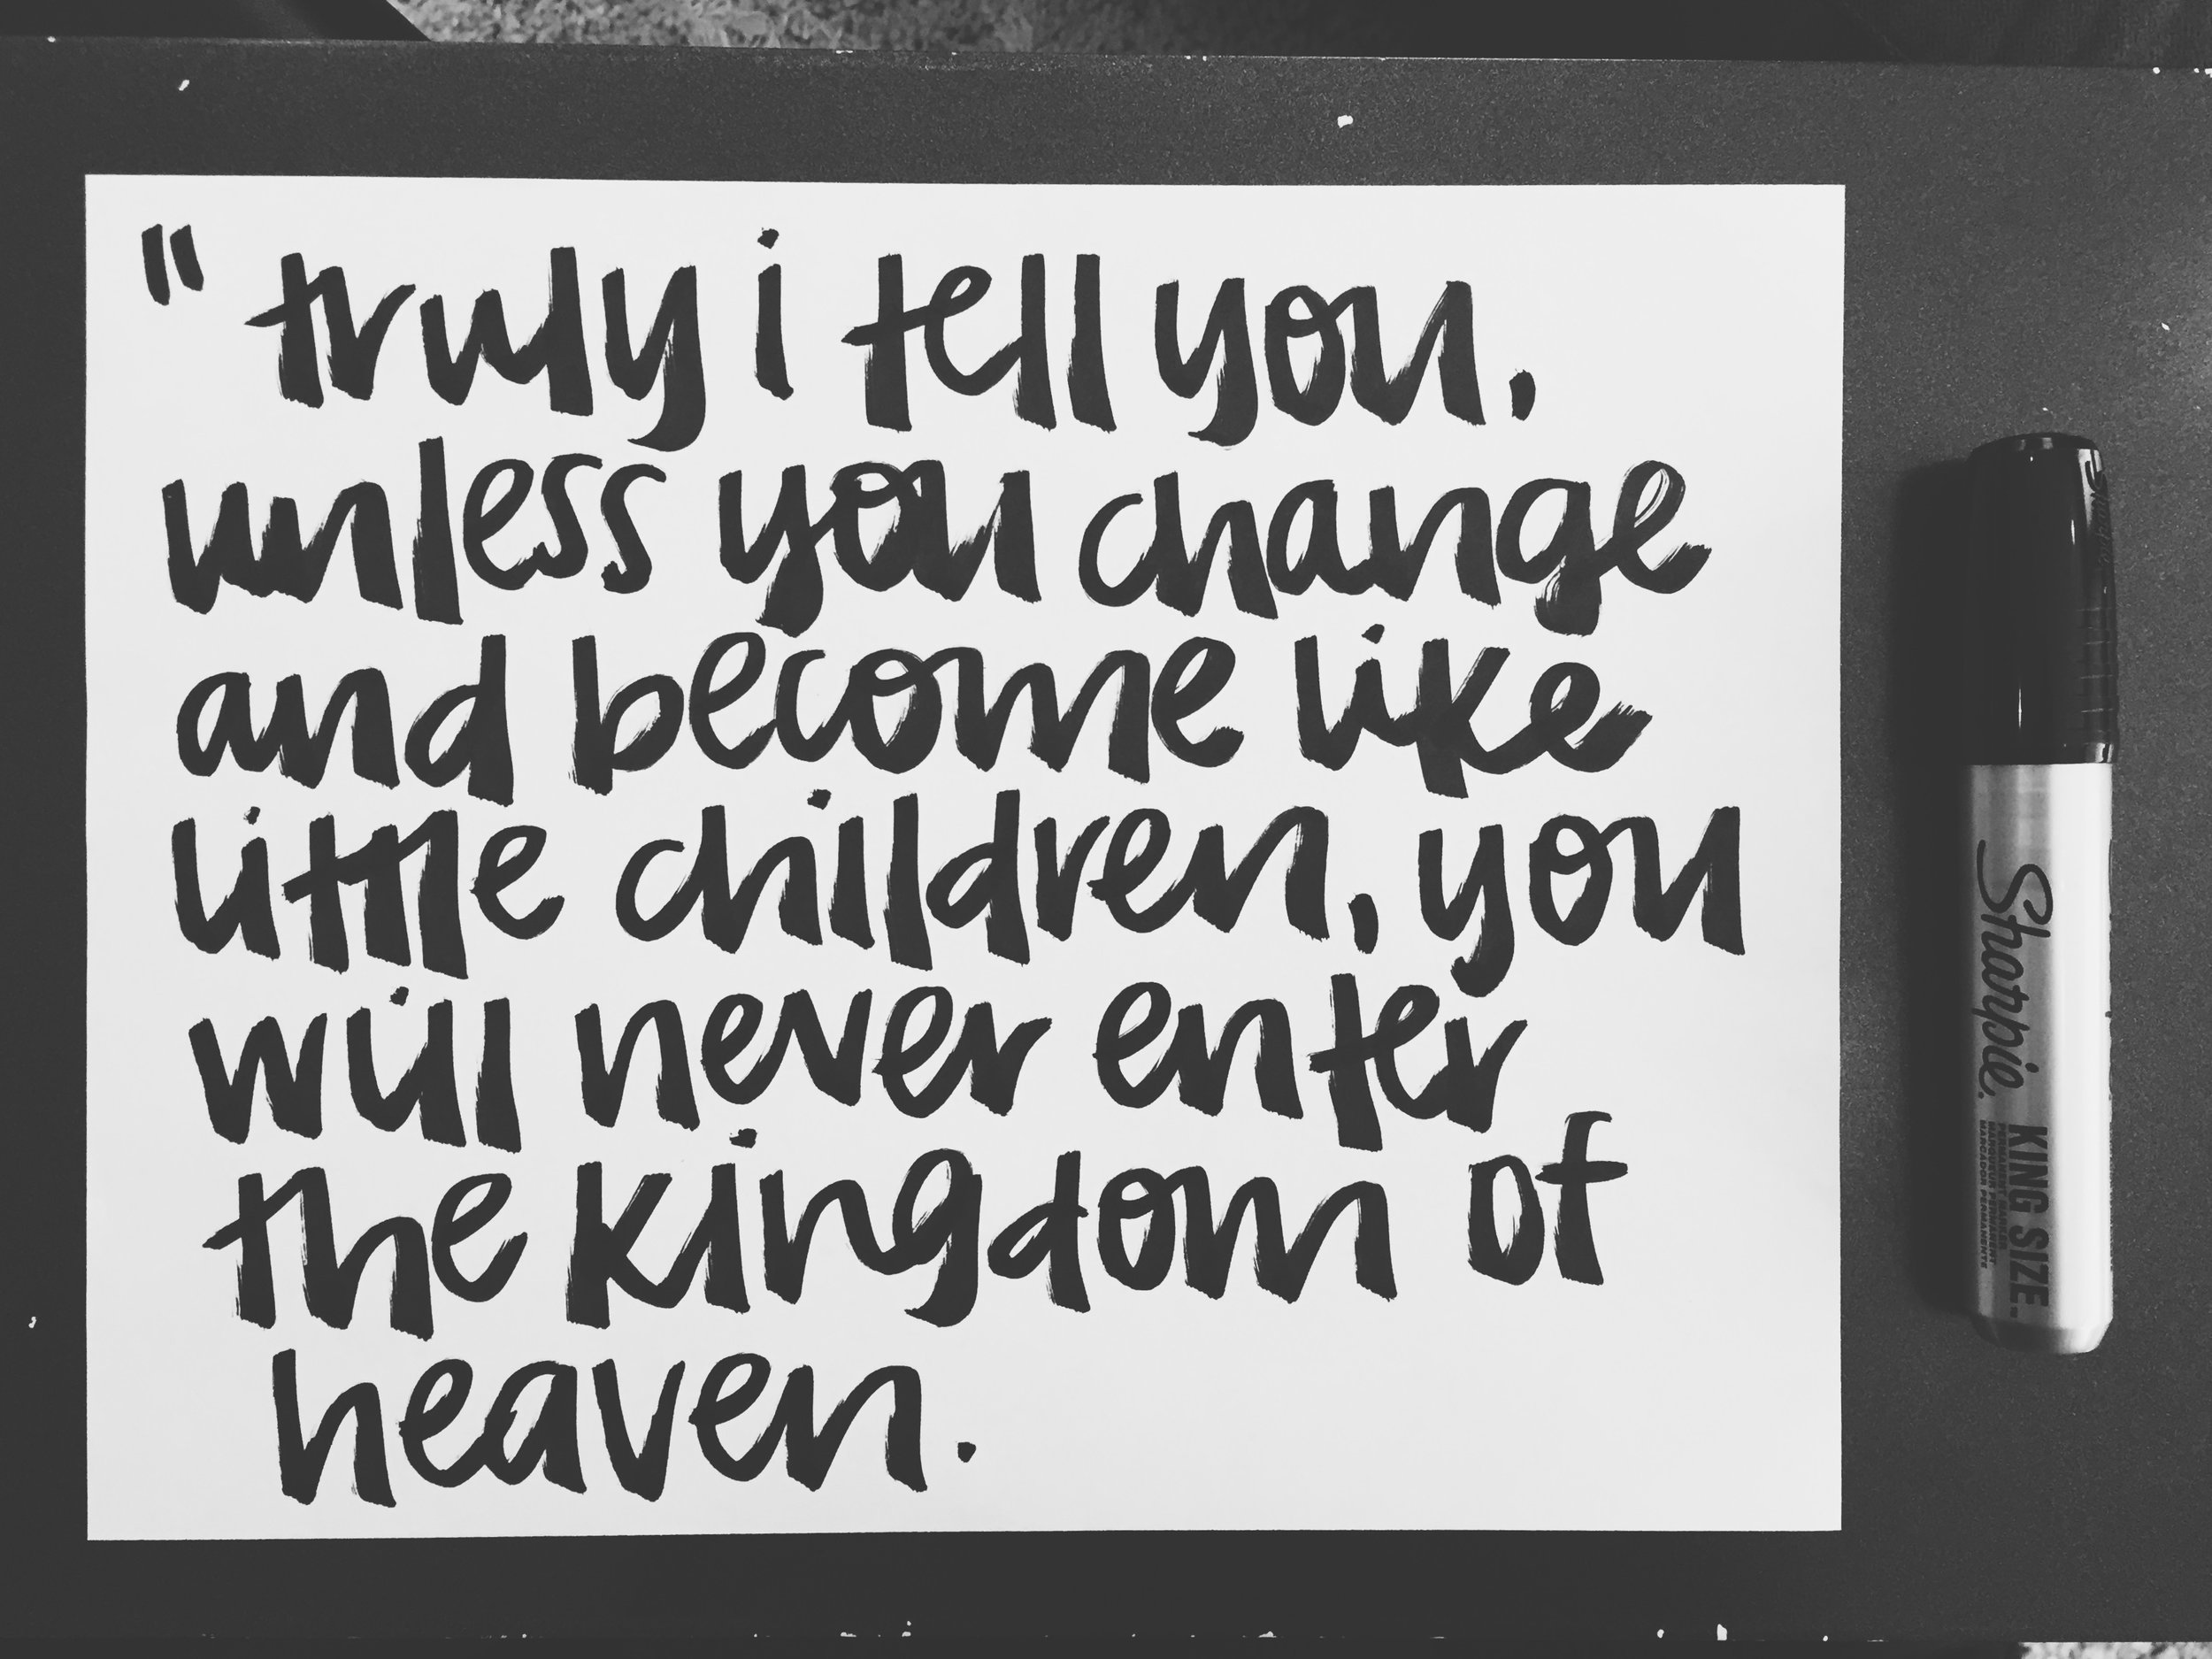 "truly i tell you,
unless you change
and become like
little children, you
will never enter
the kingdom of
heaven.
Sharpie.
KING SIZE™
PERMANENT MARKER
MARQUEUR PERMANENT
MARCADOR PERMANENTE